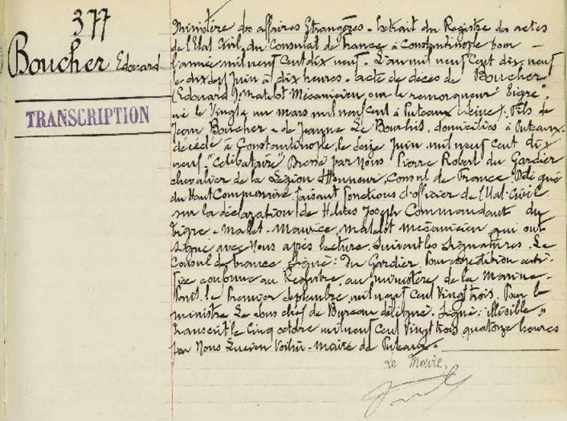 377
Boucher Edouard
TRANSCRIPTION
Ministère des affaires Etrangères. Extrait du Registre des actes
de l'Etat Civil du Consulat de France à Constantinople pour
l'année mil neuf cent dix neuf. L'an mil neuf cent dix neuf
le dix sept Juin à dix heures. acte de décès de Boucher
(Edouard) Matelot Mécanicien sur le remorqueur Tigre
né le Vingt un mars mil neuf cent à Puteaux (Seine). Fils de
Jean Boucher et de Jeanne Le Bourhis, domiciliés à Puteaux
décédé à Constantinople, le seize Juin mil neuf cent dix
neuf "Célibataire" Dressé par Nous, Pierre Robert du Gardier
chevalier de la Légion d'Honneur, Consul de France, Délégué
du Haut Commissaire faisant fonctions d'officier de l'Etat-Civil
sur la déclaration de Joseph Commandant du
Tigre. Mallet Maurice, Matelot mécanicien qui ont
signé avec Nous après lecture. Suivant les signatures. Le
Consul de France signé: Du Gardier Pour expédition
conforme au Registre, au ministère de la Marine
Paris, le premier septembre mil neuf cent Vingt trois. Pour le
ministre Le sous chef de Bureau délégué. Signé: illisible"
transcrit le Cinq octobre mil neuf cent Vingt trois quatorze heures
par Nous Lucien Voilin. maire de Puteaux.
Le Maire,